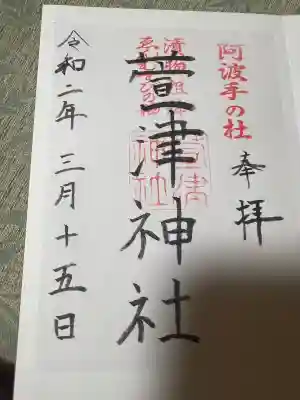 阿波手の杜
奉拝
萱津神社
令和二年三月十五日